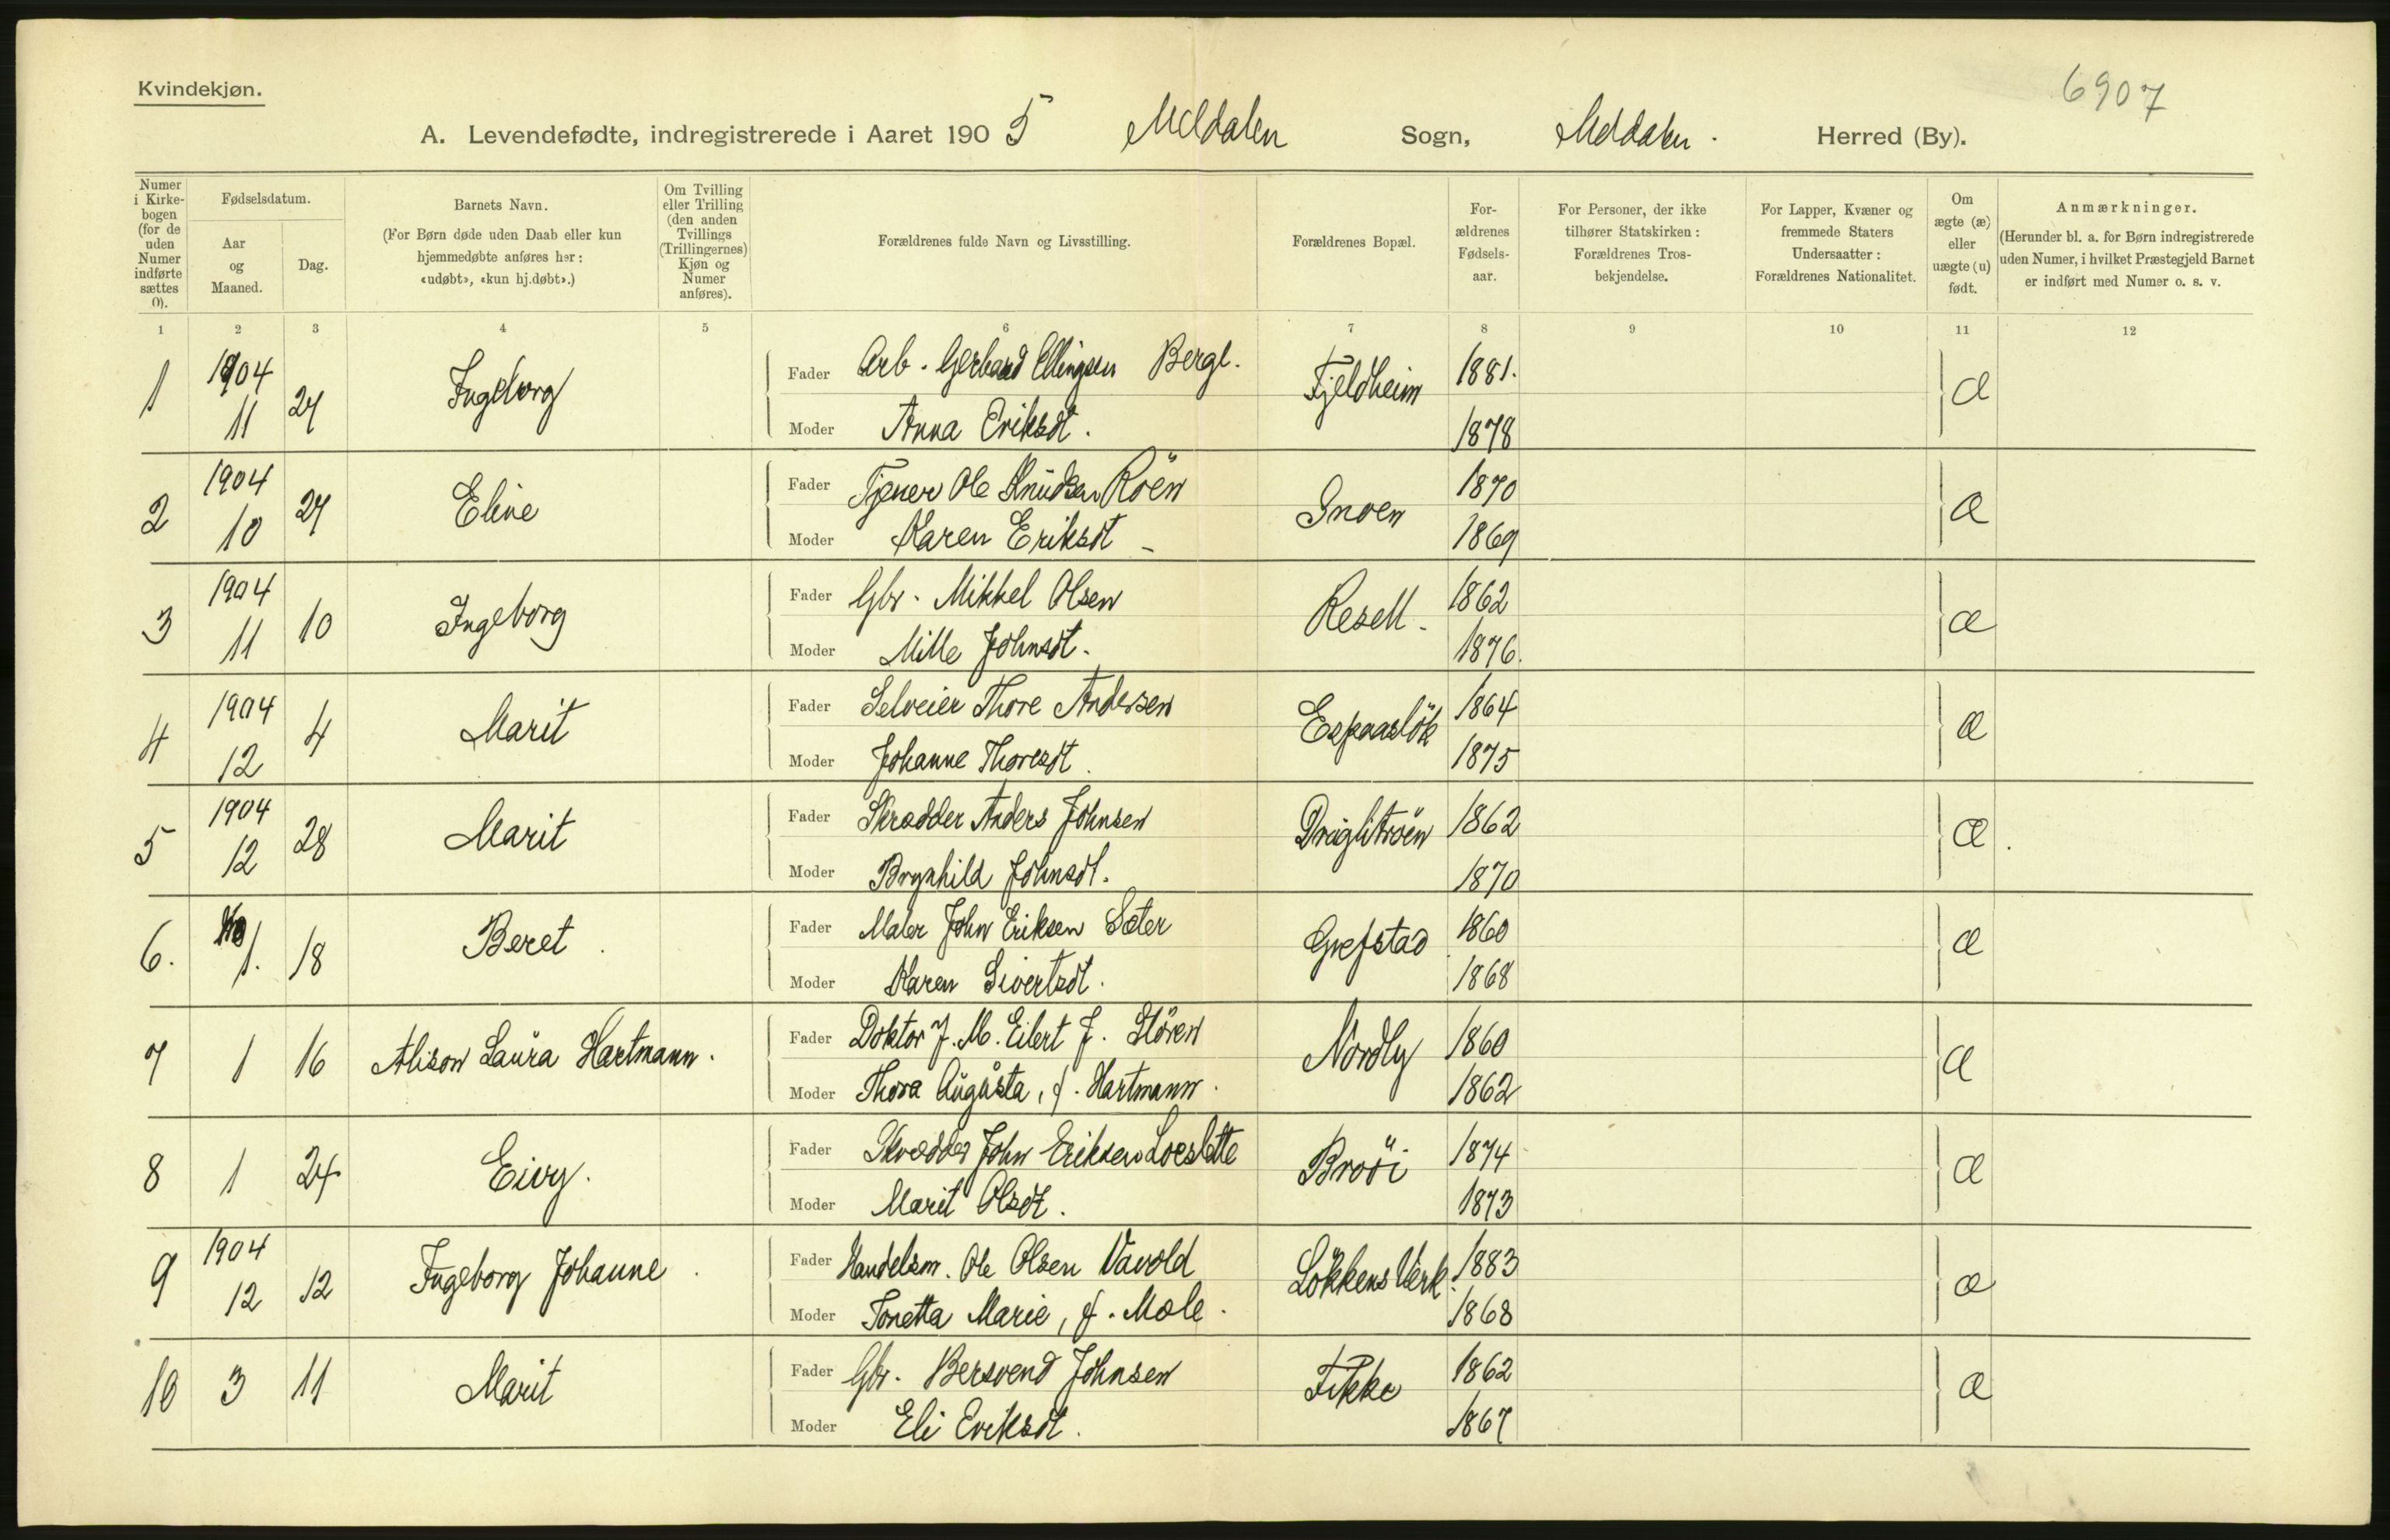 Kvindekjøn.
6907
A. Levendefødte, indregistrerede i Aaret 1905 Meldalen Sogn, Meldalen. Herred (By).
Numer i Kirkebogen (for de uden Numer indførte sættes 0).
Fødselsdatum.
Aar og Maaned.
Dag.
Barnets Navn.
(For Børn døde uden Daab eller kun hjemmedøbte anføres her: «udøbt», «kun hj.døbt».)
Om Tvilling eller Trilling (den anden Tvillings (Trillingernes) Kjøn og Numer anføres).
Forældrenes fulde Navn og Livsstilling.
Forældrenes Bopæl.
Forældrenes Fødselsaar.
For Personer, der ikke tilhører Statskirken: Forældrenes Trosbekjendelse.
For Lapper, Kvæner og fremmede Staters Undersaatter: Forældrenes Nationalitet.
Om ægte (æ) eller uægte (u) født.
Anmærkninger.
(Herunder bl. a. for Børn indregistrerede uden Numer, i hvilket Præstegjeld Barnet er indført med Numer o. s. v.
1 2 3 4 5 6 7 8 9 10 11 12
1 1904 11 27 Ingeborg Fader Arb. Gerhard Ellingsen Bergl. Fjeldheim 1881. æ
Moder Anna Eriksdt. 1878
2 1904 10 27 Eline Fader Tjener Ole Knudsen Röen Snoen 1870 æ
Moder Karen Eriksdt 1869
3 1904 11 10 Ingeborg Fader Gbr. Mikkel Olsen Resell 1862 æ
Moder Mille Johnsdt. 1876.
4 1904 12 4 Marit Fader Selveier Thore Andersen 1864 æ
Moder Johanne Thoresdt. 1875
5 1904 12 28 Marit Fader Skrædder Anders Johnsen 1862 æ.
Moder Brynhild Johnsdt. 1870
6. 1. 18 Beret. Fader Maler John Eriksen Sæter Grefstad 1860 æ
Moder Karen Sivertsdt. 1868
7 1 16 Alison Laura Hartmann. Fader Doktor J. M. Eilert J. Stören Nordly 1860 æ
Moder Thora Augusta, f. Hartmann. 1862
8 1 24 Eivy. Fader Skrædder John Eriksen Loeslette Brröi 1874 æ
Moder Marit Olsdt. 1873
9 1904 12 12 Ingeborg Johanne. Fader Handelsm. Ole Olsen Vavold Lökkens Verk. 1883 æ
Moder Tonetta Marie, f. Mæle. 1868
10 3 11 Marit Fader Gbr. Bersvend Johnsen Fikke 1862 æ
Moder Eli Eriksdt. 1867